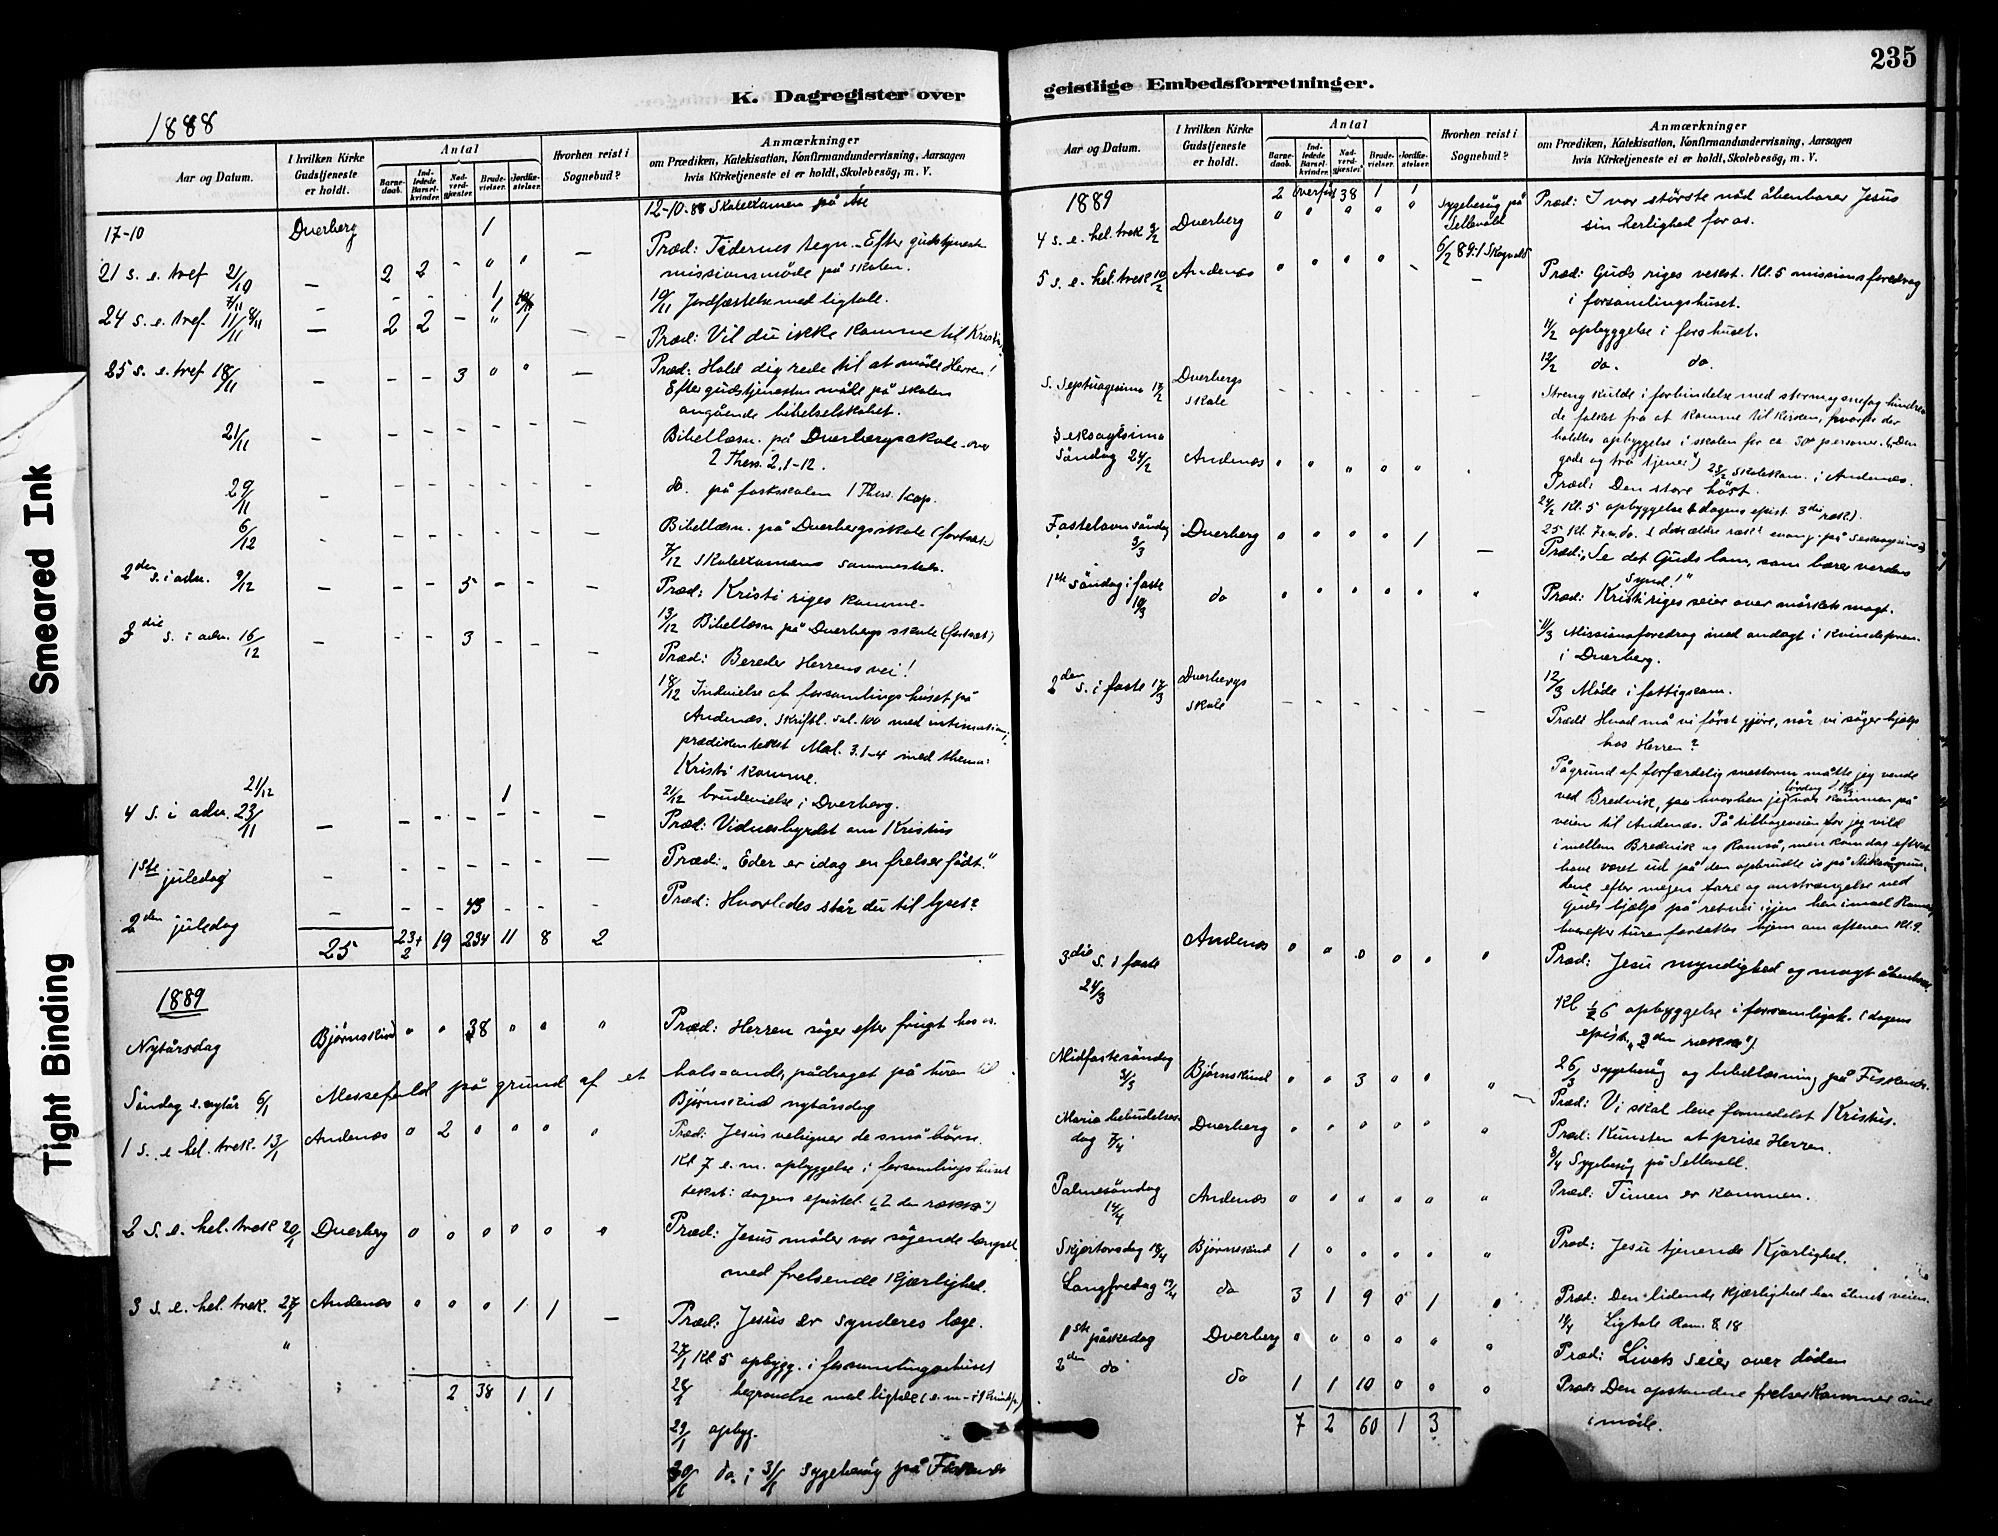 Smeared Ink
Tight Binding
K. Dagregister over
1888
Aar og Datum.
I hvilken Kirke Gudstjeneste er holdt.
Antal
Barne-daab.
Ind-ledede Barsel-kvinder.
Nad-verd-gjæster.
Brude-vielser.
Jordfæ-stelser.
Hvorhen reist i Sognebud?
Anmærkninger
om Prædiken, Katekisation, Konfirmandundervisning, Aarsagen
hvis Kirketjeneste ei er holdt, Skolebesög, m. V.
12-10-88 Skoleexamen på Åse
17-10 Dverberg 1
Præd: Tidernes tegn. Efter gudstjeneste
21 s. e. tref 21/10 — 2 2 - " " —
missionsmöde på skolen.
7/11 - - - 1
10/11 Jordfæstelse med ligtale.
24 s. e. tref. 11/11 — 2 2 - " 1 -
Præd: Vil du ikke komme til Kristus
25 s. e. tref 18/11 — - - 3 " " —
Præd: Hold dig rede til at möde Herren!
Efter gudstjenesten möde på skolen
angående bibelselskabet.
21/11 - - - - - - -
Bibellæsn. på Dverbergs skole over
2 Thess. 2, 1-12.
29/11 - - - - - - -
do. på fastskolen 1 Thess. 1 cap.
6/12 - - - - - - -
Bibellæsn. på Dverbergs skole (fortsat)
7/12 Skoleexamen sammesteds.
2den s. i adv. 9/12 — - - 5 - - —
Præd: Kristi riges komme.
13/12 Bibellæsn på Dverbergs skole (fortsat)
3die s. i adv. 16/12 — - - 3 - - —
Præd: Bereder Herrens vei!
18/12 Indvielse af forsamlingshuset på
Andenæs. Skriftl. sal. 100 med intimation;
prædiken tekst Mal. 3. 1-4 med thema:
Kristi komme.
21/12 1
21/12 brudevielse i Dverberg.
4 s. i adv. 23/11 — - - - - - —
Præd: Vidnesbyrdet om Kristus
1ste juledag — - - - - - —
Præd: „Eder er idag en frelser født."
2den juledag — - - 43 - - -
Præd: Hvorledes står du til lyset?
25 23+2 19 234 11 8 2
1889
Nytårsdag Bjørnskind " " 38 " " "
Præd: Herren söger efter frugt hos os.
Söndag e. nytår 6/1 Messefald på grund af et halsonde, pådraget på turen til
Bjørnskind nytårsdag
1 s. e hel. trek. 13/1 Andenæs 0 2 0 0 0 "
Præd: Jesus velsigner de små börn.
Kl 7 e. m. opbyggelse i forsamlingshuset
tekst: dagens epistel („2 den række")
2 s. e. hel. trek 20/1 Dverberg 0 0 0 0 0 "
Præd: Jesus möder vor sögende længsel
med frelsende kjærlighed.
3 s. e. hel. trek. 27/1 Andenæs 0 0 0 1 1 —
Præd: Jesus er synderes læge.
" 27/1 Kl 5 opbygg. i forsamlingshuset
2 38 1 1
28/1 begravelse med ligtale
29/1 opbyg.
30/1 do. ; 31/1 sygebesög på Fiskenes
geistlige Embedsforretninger.
235
Aar og Datum.
I hvilken Kirke Gudstjeneste er holdt.
Antal
Barne-daab.
Ind-ledede Barsel-kvinder.
Nad-verd-gjæster.
Brude-vielser.
Jordfæ-stelser.
Hvorhen reist i Sognebud?
Anmærkninger
om Prædiken, Katekisation, Konfirmandundervisning, Aarsagen
hvis Kirketjeneste ei er holdt, Skolebesög, m. V.
1889 2 overført 38 1 1
4 s. e. hel. trek 3/2 Dverberg " " " " " Sygebesög på Sellevold
Præd: I vor störste nöd åbenbarer Jesus
sin herlighed for os.
6/2 89 i Skogvold
5 s. e. hel. trek 10/2 Andenæs 0 0 0 0 - -
Præd: Guds riges vekst. Kl. 5 missionsforedrag
i forsamlingshuset.
11/2 opbyggelse i forshuset.
12/2 do. do.
S. Septuagesima 17/2 Dverbergs skole - - - - - -
Streng kulde i forbindelse med storm og snefog hindre-
de folket fra at komme til kirken, hvorfor der
holdtes opbyggelse i skolen for ca. 30 personer. („Den
gode og tro tjener") 23/2 Skoleexam. i Andenæs.
Seksagesima
Söndag 24/2 Andenæs 0 0 0 0 0 .
Præd: Den store höst.
24/2 Kl. 5 opbyggelse dagens epist. 3die række).
Fastelavns söndag 3/3 Dverberg 0 0 0 0 1 —
Præd: „Se det Guds lam, som bærer verdens
synd!"
1ste söndag i faste 10/3 do 0 0 0 0 0 "
Præd: Kristi riges seier over mörkets magt.
11/3 Missionsforedrag med andagt i kvindeforen.
i Dverberg.
12/3 Möde i fattigcom.
2den s. i faste 17/3 Dverbergs skole - - - - - -
Præd: Hvad må vi först gjöre, når vi söger hjælp
hos Herren?
På grund af forfærdelig snestorm måtte jeg vende
ved Bredvik, paa hvorhen jeg var kommen på
veien til Andenæs. På tilbageveien for jeg vild
imellem Bredvik og Ramså, men kom dog efter at
have været ud på den opbrudte is på
dene efter megen fare og anstrængelse ved
Guds hjælp på ret vei igjen hen imod Ramså,
hvorefter turen fortsattes hjem om aftenen kl. 9.
3die s. i faste 24/3 Andenæs 0 0 0 0 0 0
Præd: Jesu myndighed og magt
Kl 1/2 6 opbyggelse i forsamligsh. (dagens
epist. „3den række").
26/3 Sygebesög og bibellæsning på Fiskenes.
Midfastesöndag 31/3 Bjørnskind 0 0 3 0 0 "
Præd: Vi skal leve formedelst Kristus.
Mariæ bebudelses-
dag 7/4 Dverberg 0 0 0 0 0 "
Præd: Kunsten at prise Herren.
8/4 Sygebesög på Sellevold.
Palmesöndag 14/4 Andenæs 0 0 0 0 0 "
Præd: Timen er kommen.
Skjærtorsdag 18/4 Bjørnskind 1 0 0 0 0 "
Præd: Jesu tjenende kjærlighed.
Langfredag 19/4 do 3 1 9 0 1 0
Præd: Den lidende kjærlighed har åbnet veien.
19/4 Ligtale Rom. 8. 18
1ste påskedag Dverberg 0 0 0 0 0 0
Præd: Livets seier over döden
2den do do 1 1 10 0 0 0
Præd: Den opstandne frelser kommer sine
i möde.
7 2 60 1 3